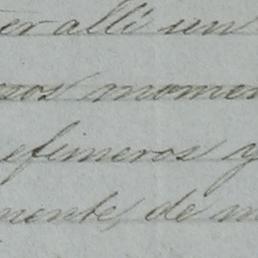 er alli un
nos momen
efimeros y
mente, de m